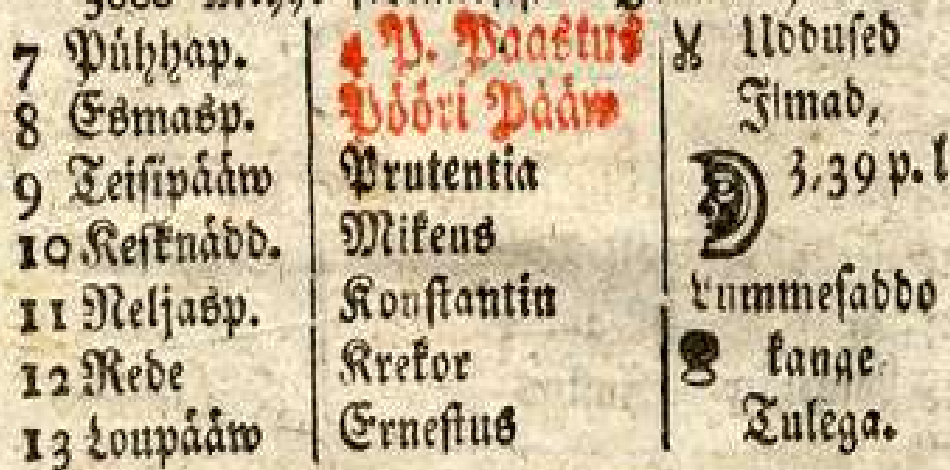 7 Pühhap. 4 P. Paastus Uddused
8 Esmasp. Pööri Pääw Ilmad,
9 Teisipääw Prutentia 3,39 p. l
10 Keſknädd. Mikeus
11 Neljasp. Konſtantin Lummeſaddo
12 Rede Krekor kange
13 Loupääw Erneſtus Tulega.